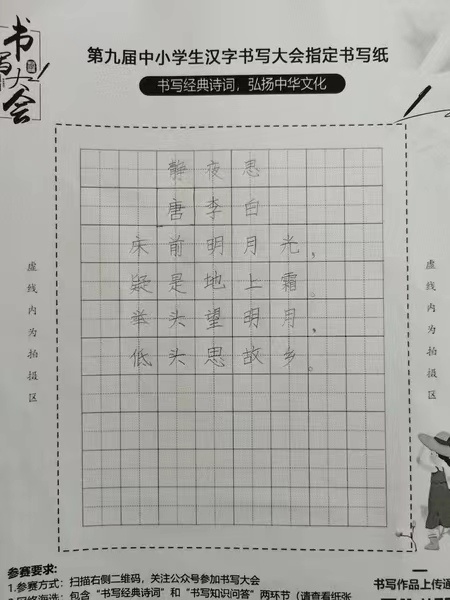 书写大会
第九届中小学生汉字书写大会指定书写纸
书写经典诗词，弘扬中华文化
静夜思
唐李白
床前明月光，
疑是地上霜。
举头望明月，
低头思故乡。
虚线内为拍摄区
虚线内为拍摄区
参赛要求：
1.参赛方式：扫描右侧二维码，关注公众号参加书写大会
包含“书写经典诗词”和“书写知识问答”两环节（请查看纸张
书写作品上传通